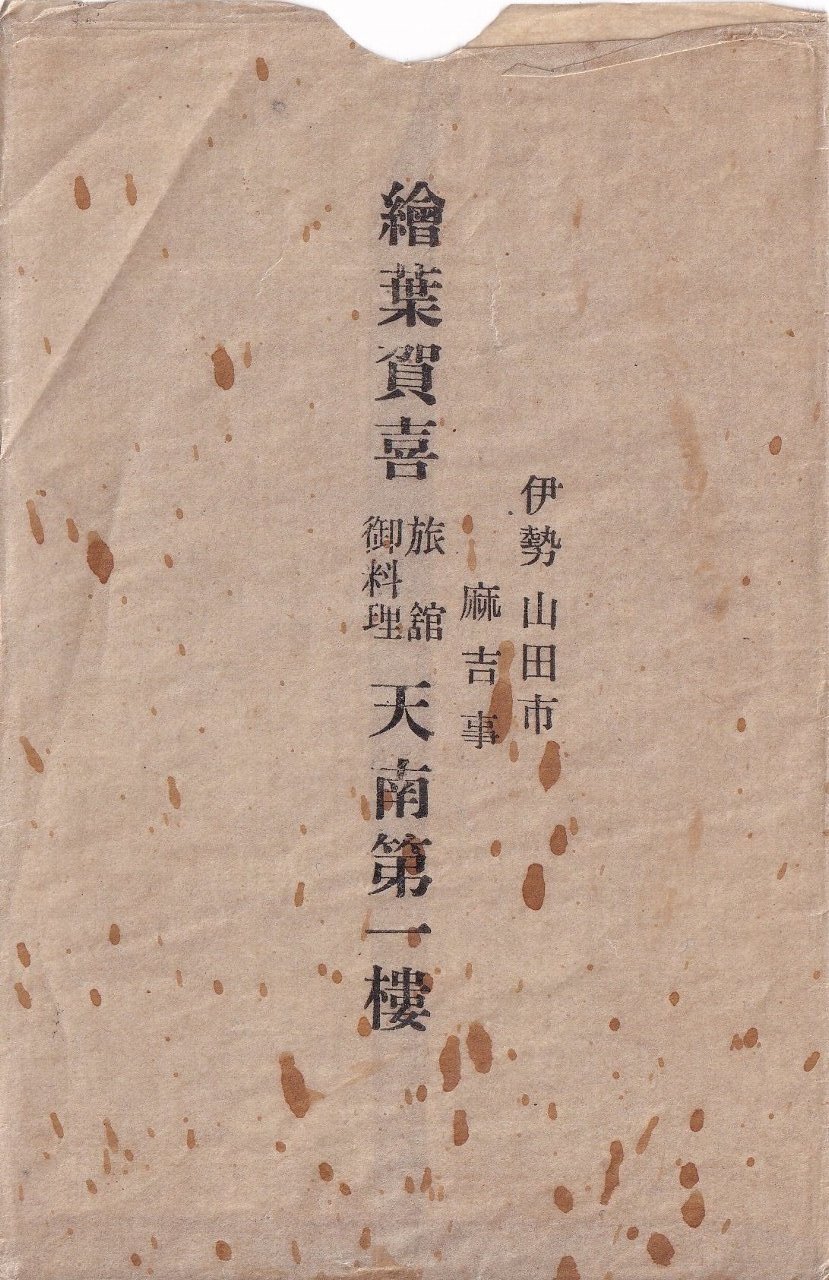 伊勢山田市
麻吉事
繪葉賀喜
旅舘
御料理
天南第一樓